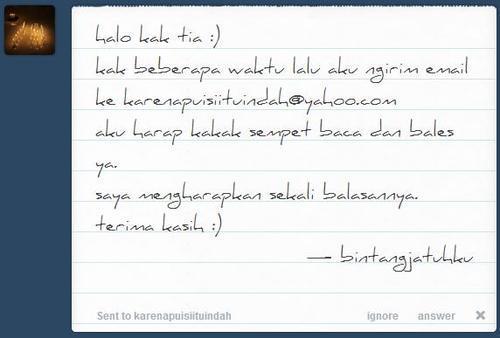 halo kak tia :)
kak beberapa waktu lalu aku ngirim email
ke karenapuisiituindah@yahoo.com
aku harap kakak sempet baca dan bales
ya.
saya mengharapkan sekali balasannya.
terima kasih :)
— bintangjatuhku
Sent to karenapuisiituindah ignore answer ×